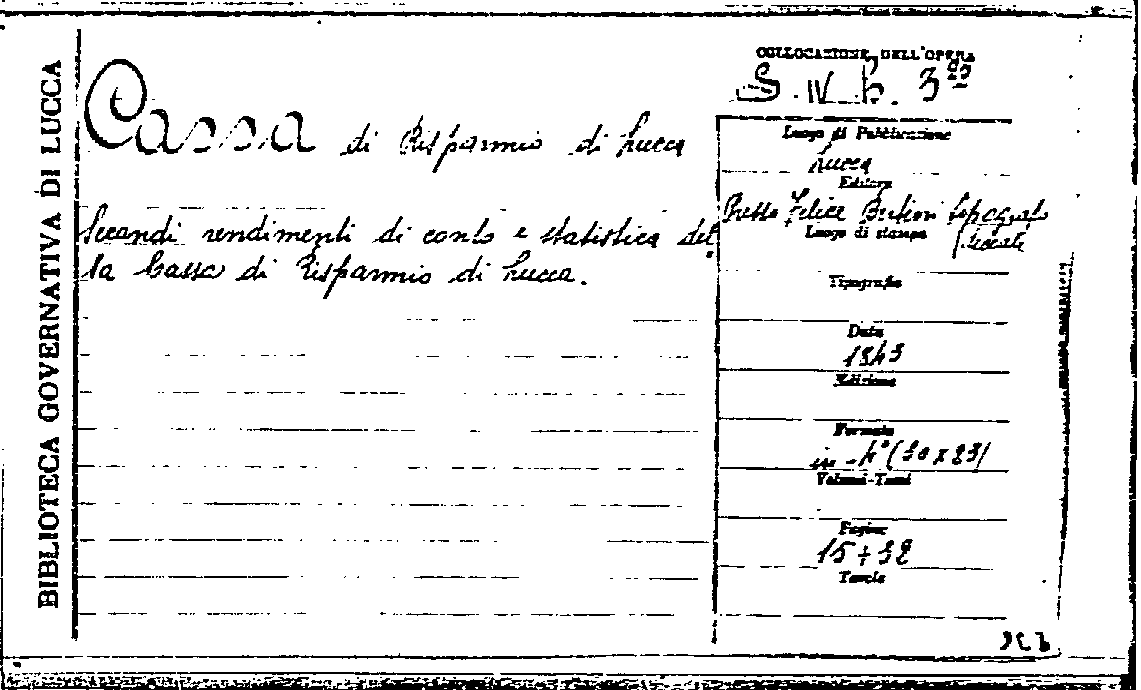 BIBLIOTECA GOVERNATIVA DI LUCCA
Cassa di Risparmio di Lucca
Secondi rendimenti di conto e statistica del
la Cassa di Risparmio di Lucca.
COLLOCAZIONE DELL'OPERA
S. IV. b.
Luogo di Pubblicazione
Lucca
Editore
Presso Felice Bertini tipografo
Luogo di stampa
Ducale
Tipografia
Data
1843
Edizione
Formato
in-4° (30x23)
Volumi-Tomi
Pagine
15+32
Tavole